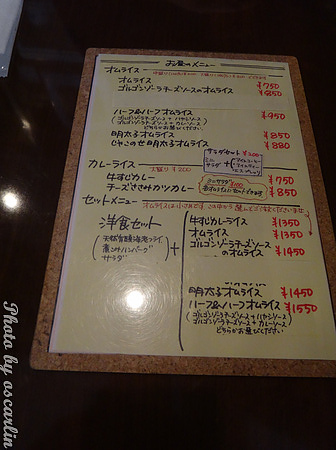 お昼のメニュー
オムライス
オムライス ¥750
ゴルゴンゾーラチーズソースのオムライス ¥850
ハーフ&ハーフオムライス ¥950
(ゴルゴンゾーラチーズソース+ハヤシソース
ゴルゴンゾーラチーズソース+カレーソース)
どちらかお選びください
明太子オムライス ¥850
じゃこのせ明太子オムライス ¥880
サラダセット ¥200
カレーライス 大盛り ¥200
牛すじカレー ¥750
チーズささみカツカレー ¥850
ミニサラダ ¥100
セットメニュー
洋食セット
(天然有頭海老フライ
煮こみハンバーグ
サラダ)
+
牛すじカレーライス ¥1350
オムライス ¥1350
ゴルゴンゾーラチーズソース
のオムライス ¥1450
明太子オムライス ¥1450
ハーフ&ハーフオムライス ¥1550
(ゴルゴンゾーラチーズソース+ハヤシソース
ゴルゴンゾーラチーズソース+カレーソース)
どちらかお選びください
Photo by oscarlin